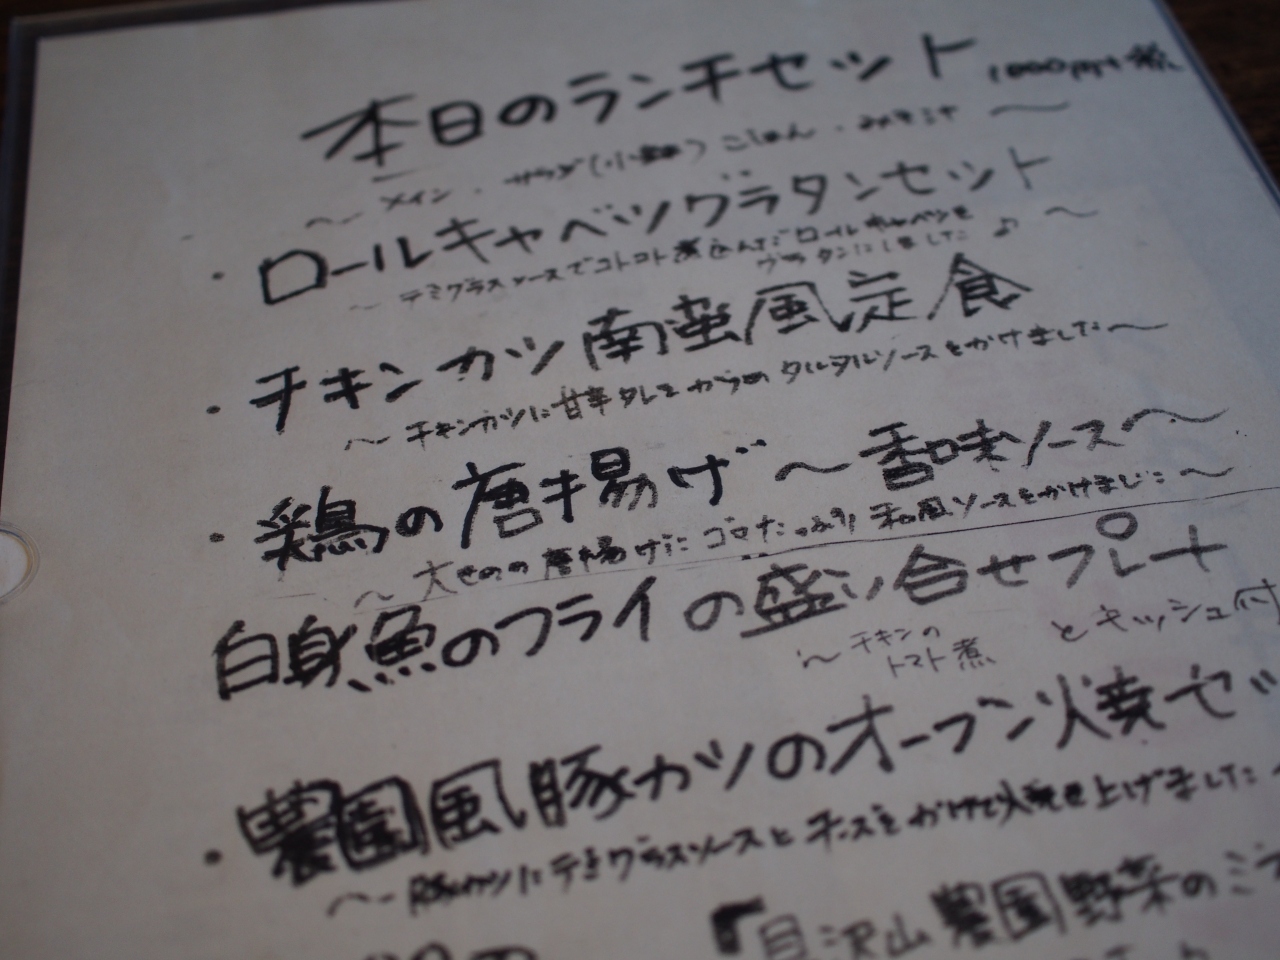 本日のランチセット
～メイン・サラダ(小鉢)ごはん・みそ汁～
・ロールキャベツグラタンセット
～デミグラスソースでコトコト煮込んだロールキャベツを
グラタンにしました♪～
・チキンカツ南蛮風定食
～チキンカツに甘辛タレをからめタルタルソースをかけました～
・鶏の唐揚げ～香味ソース～
～大きめの唐揚げにゴロたっぷり和風ソースをかけました～
白身魚のフライの盛り合せプレート
～チキンの
トマト煮
とキッシュ付
・農園風豚カツのオーブン焼セッ
～豚カツにデミグラスソースとチーズをかけて焼き上げました
農園野菜のミネ